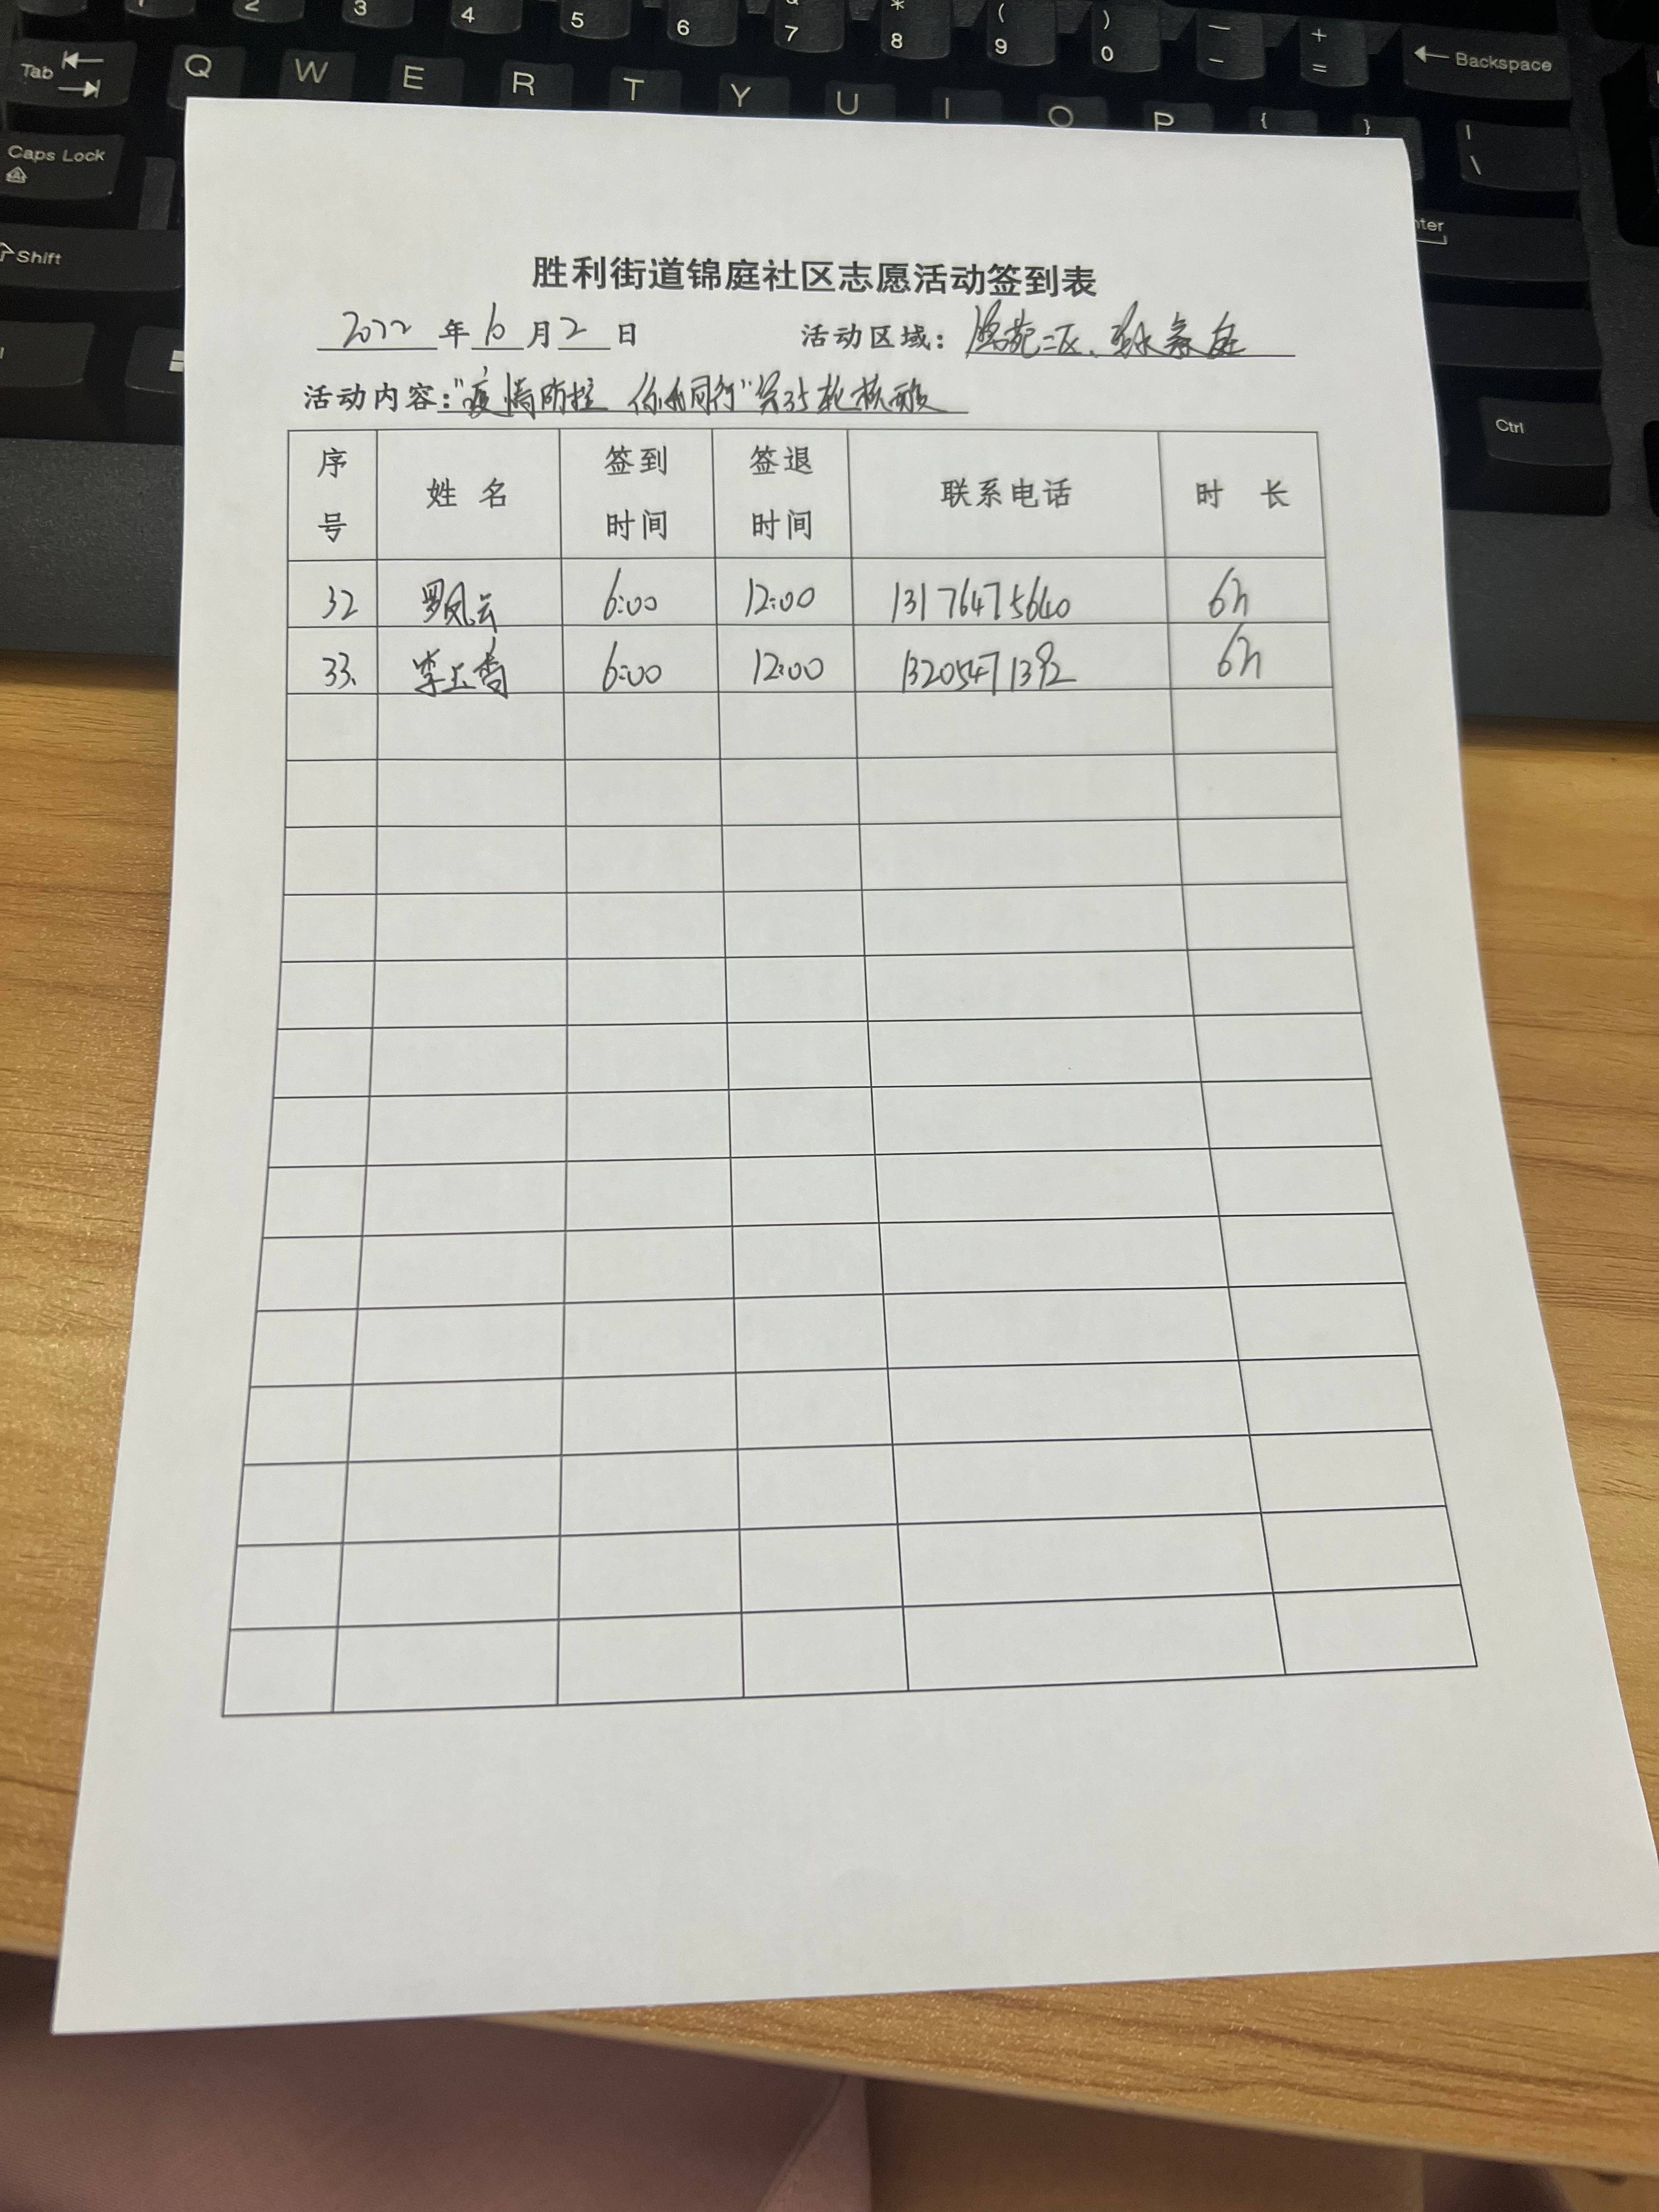 1 2 3 4 5 6 & 7 * 8 ( 9 ) 0 — - + = ← Backspace
Tab Q W E R T Y U I O P { }
| \
Caps Lock
Shift
Ctrl
胜利街道锦庭社区志愿活动签到表
2022 年 6 月 2 日 活动区域: 二区、
活动内容:"疫情防控 你我同行"第35轮核酸
序号 姓名 签到时间 签退时间 联系电话 时长
32 罗凤云 6:00 12:00 13176475640 6h
33、 李玉香 6:00 12:00 13205471392 6h